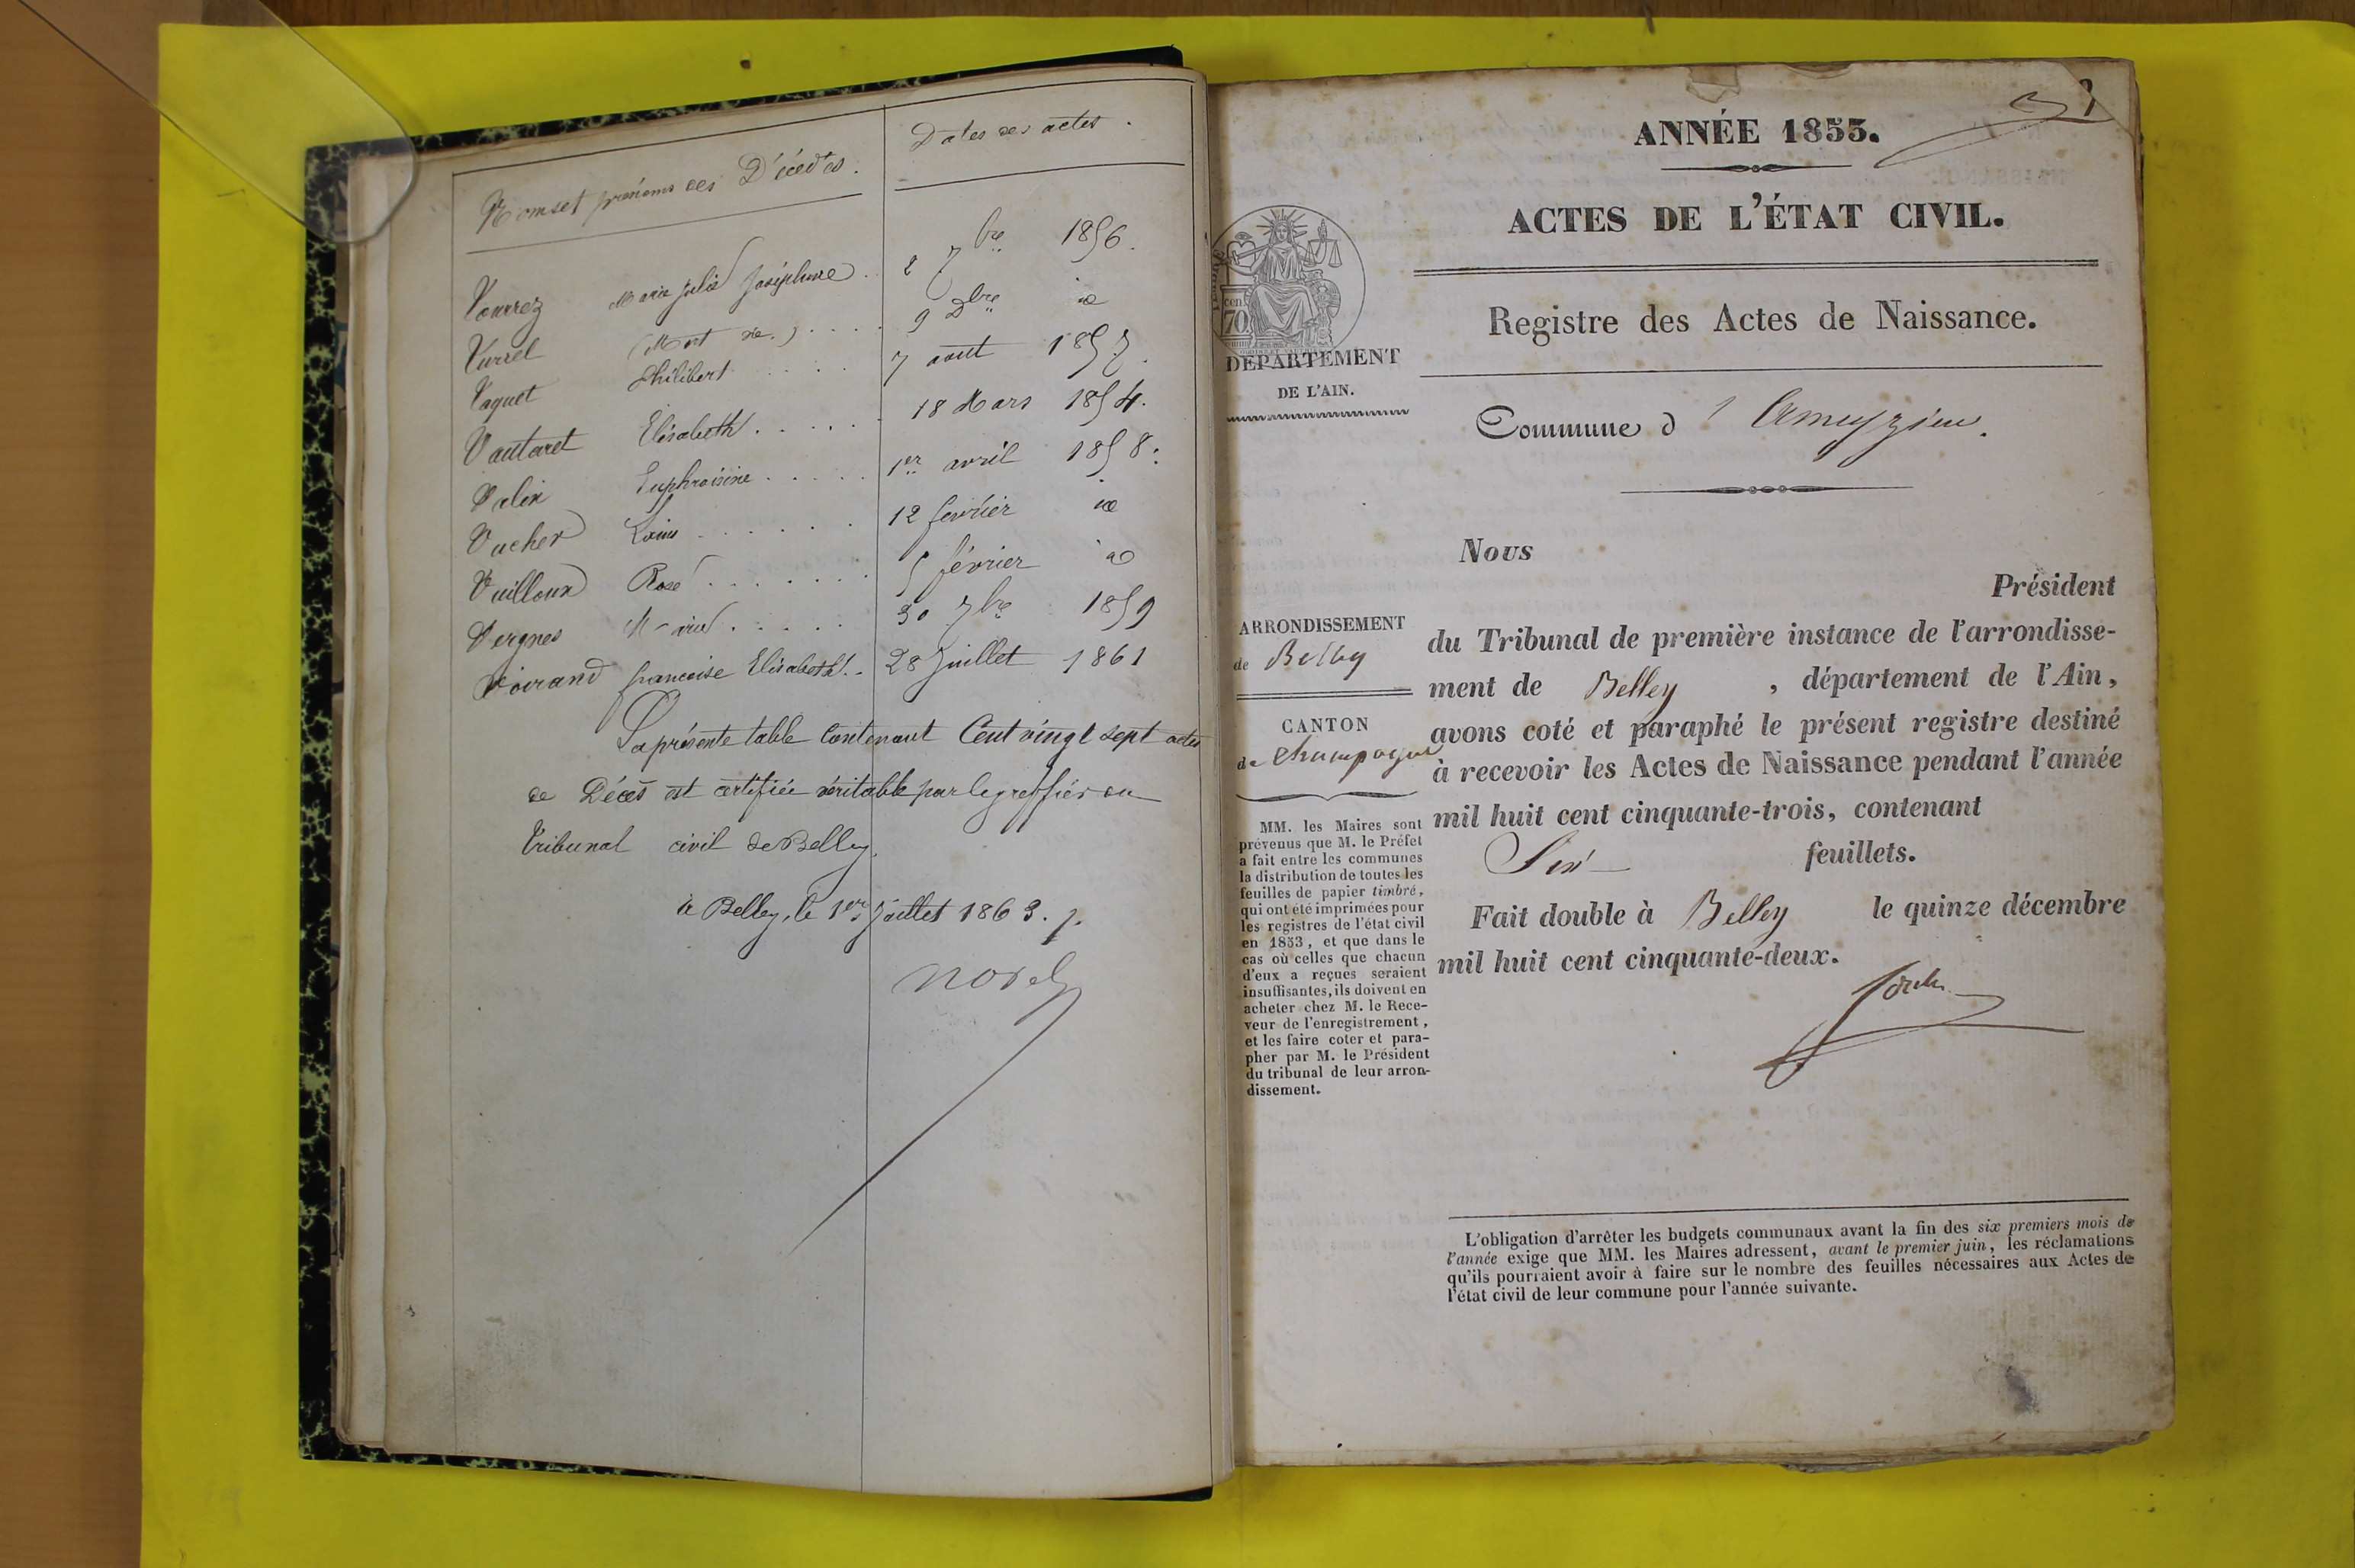 Noms et prénoms des Décédés. Dates des actes.
Vourrez Marie Julie Joséphine. 2 7bre 1856.
Vurrel (Mort né.) .... 9 Dbre id
Vaquet Philibert .... 7 aout 1857.
Vautaret Elisabeth ..... 18 Mars 1854.
Valin Euphroisine ..... 1er avril 1858.
Vucher Louis ...... 12 fevrier id
Vuilloux Rose ....... 5 février id
Vergnes Marie ..... 30 7bre 1859
Voirand françoise Elisabeth .. 28 Juillet 1861
La présente table Contenant Cent vingt sept actes
de Décès est certifiée véritable par le greffier du
Tribunal civil de Belley.
à Belley, le 1er Juillet 1863.
ANNÉE 1853.
ACTES DE L'ÉTAT CIVIL.
Registre des Actes de Naissance.
cent.
70
DÉPARTEMENT
DE L'AIN.
Commune d'Ameyzieu.
ARRONDISSEMENT
de Belley
CANTON
de Champagne
MM. les Maires sont
prévenus que M. le Préfet
a fait entre les communes
la distribution de toutes les
feuilles de papier timbré,
qui ont été imprimées pour
les registres de l'état civil
en 1853, et que dans le
cas où celles que chacun
d'eux a reçues seraient
insuffisantes, ils doivent en
acheter chez M. le Rece-
veur de l'enregistrement,
et les faire coter et para-
pher par M. le Président
du tribunal de leur arron-
dissement.
Nous
Président
du Tribunal de première instance de l'arrondisse-
ment de Belley, département de l'Ain,
avons coté et paraphé le présent registre destiné
à recevoir les Actes de Naissance pendant l'année
mil huit cent cinquante-trois, contenant
Six feuillets.
Fait double à Belley le quinze décembre
mil huit cent cinquante-deux.
L'obligation d'arrêter les budgets communaux avant la fin des six premiers mois de
l'année exige que MM. les Maires adressent, avant le premier juin, les réclamations
qu'ils pourraient avoir à faire sur le nombre des feuilles nécessaires aux Actes de
l'état civil de leur commune pour l'année suivante.